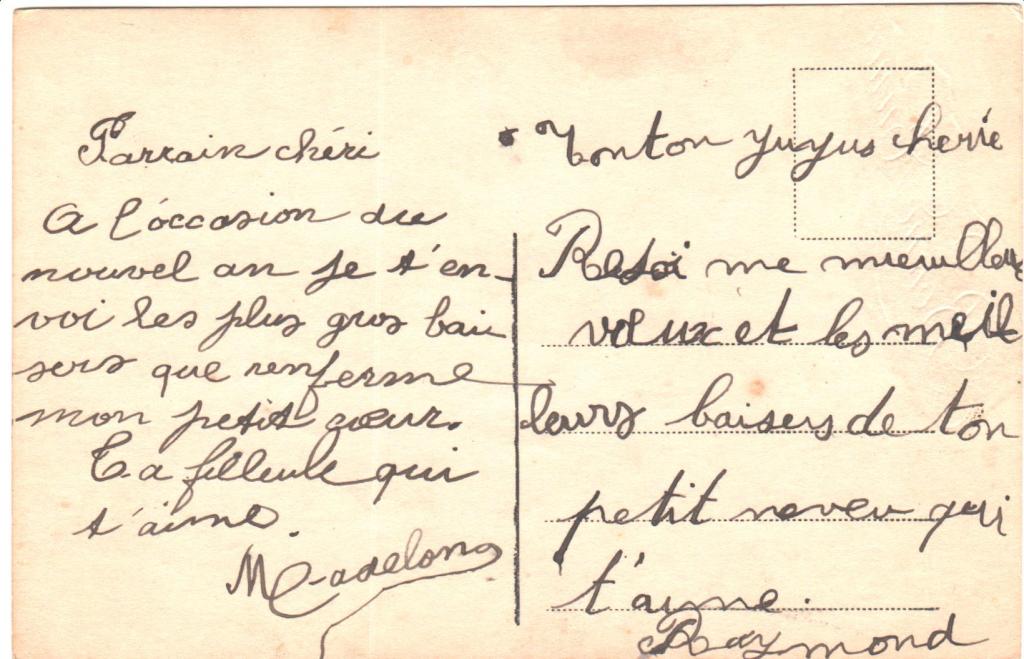 Parrain chéri
A l'occasion du
nouvel an je t'en-
voi les plus gros bai
sers que renferme
mon petit cœur.
Ta filleule qui
t'aime.
Madelon
Tonton Yuyus cherie
Resoi me mieuilleur
vœux et les meil
leurs baisers de ton
petit neveu qui
t'ayme.
Raymond